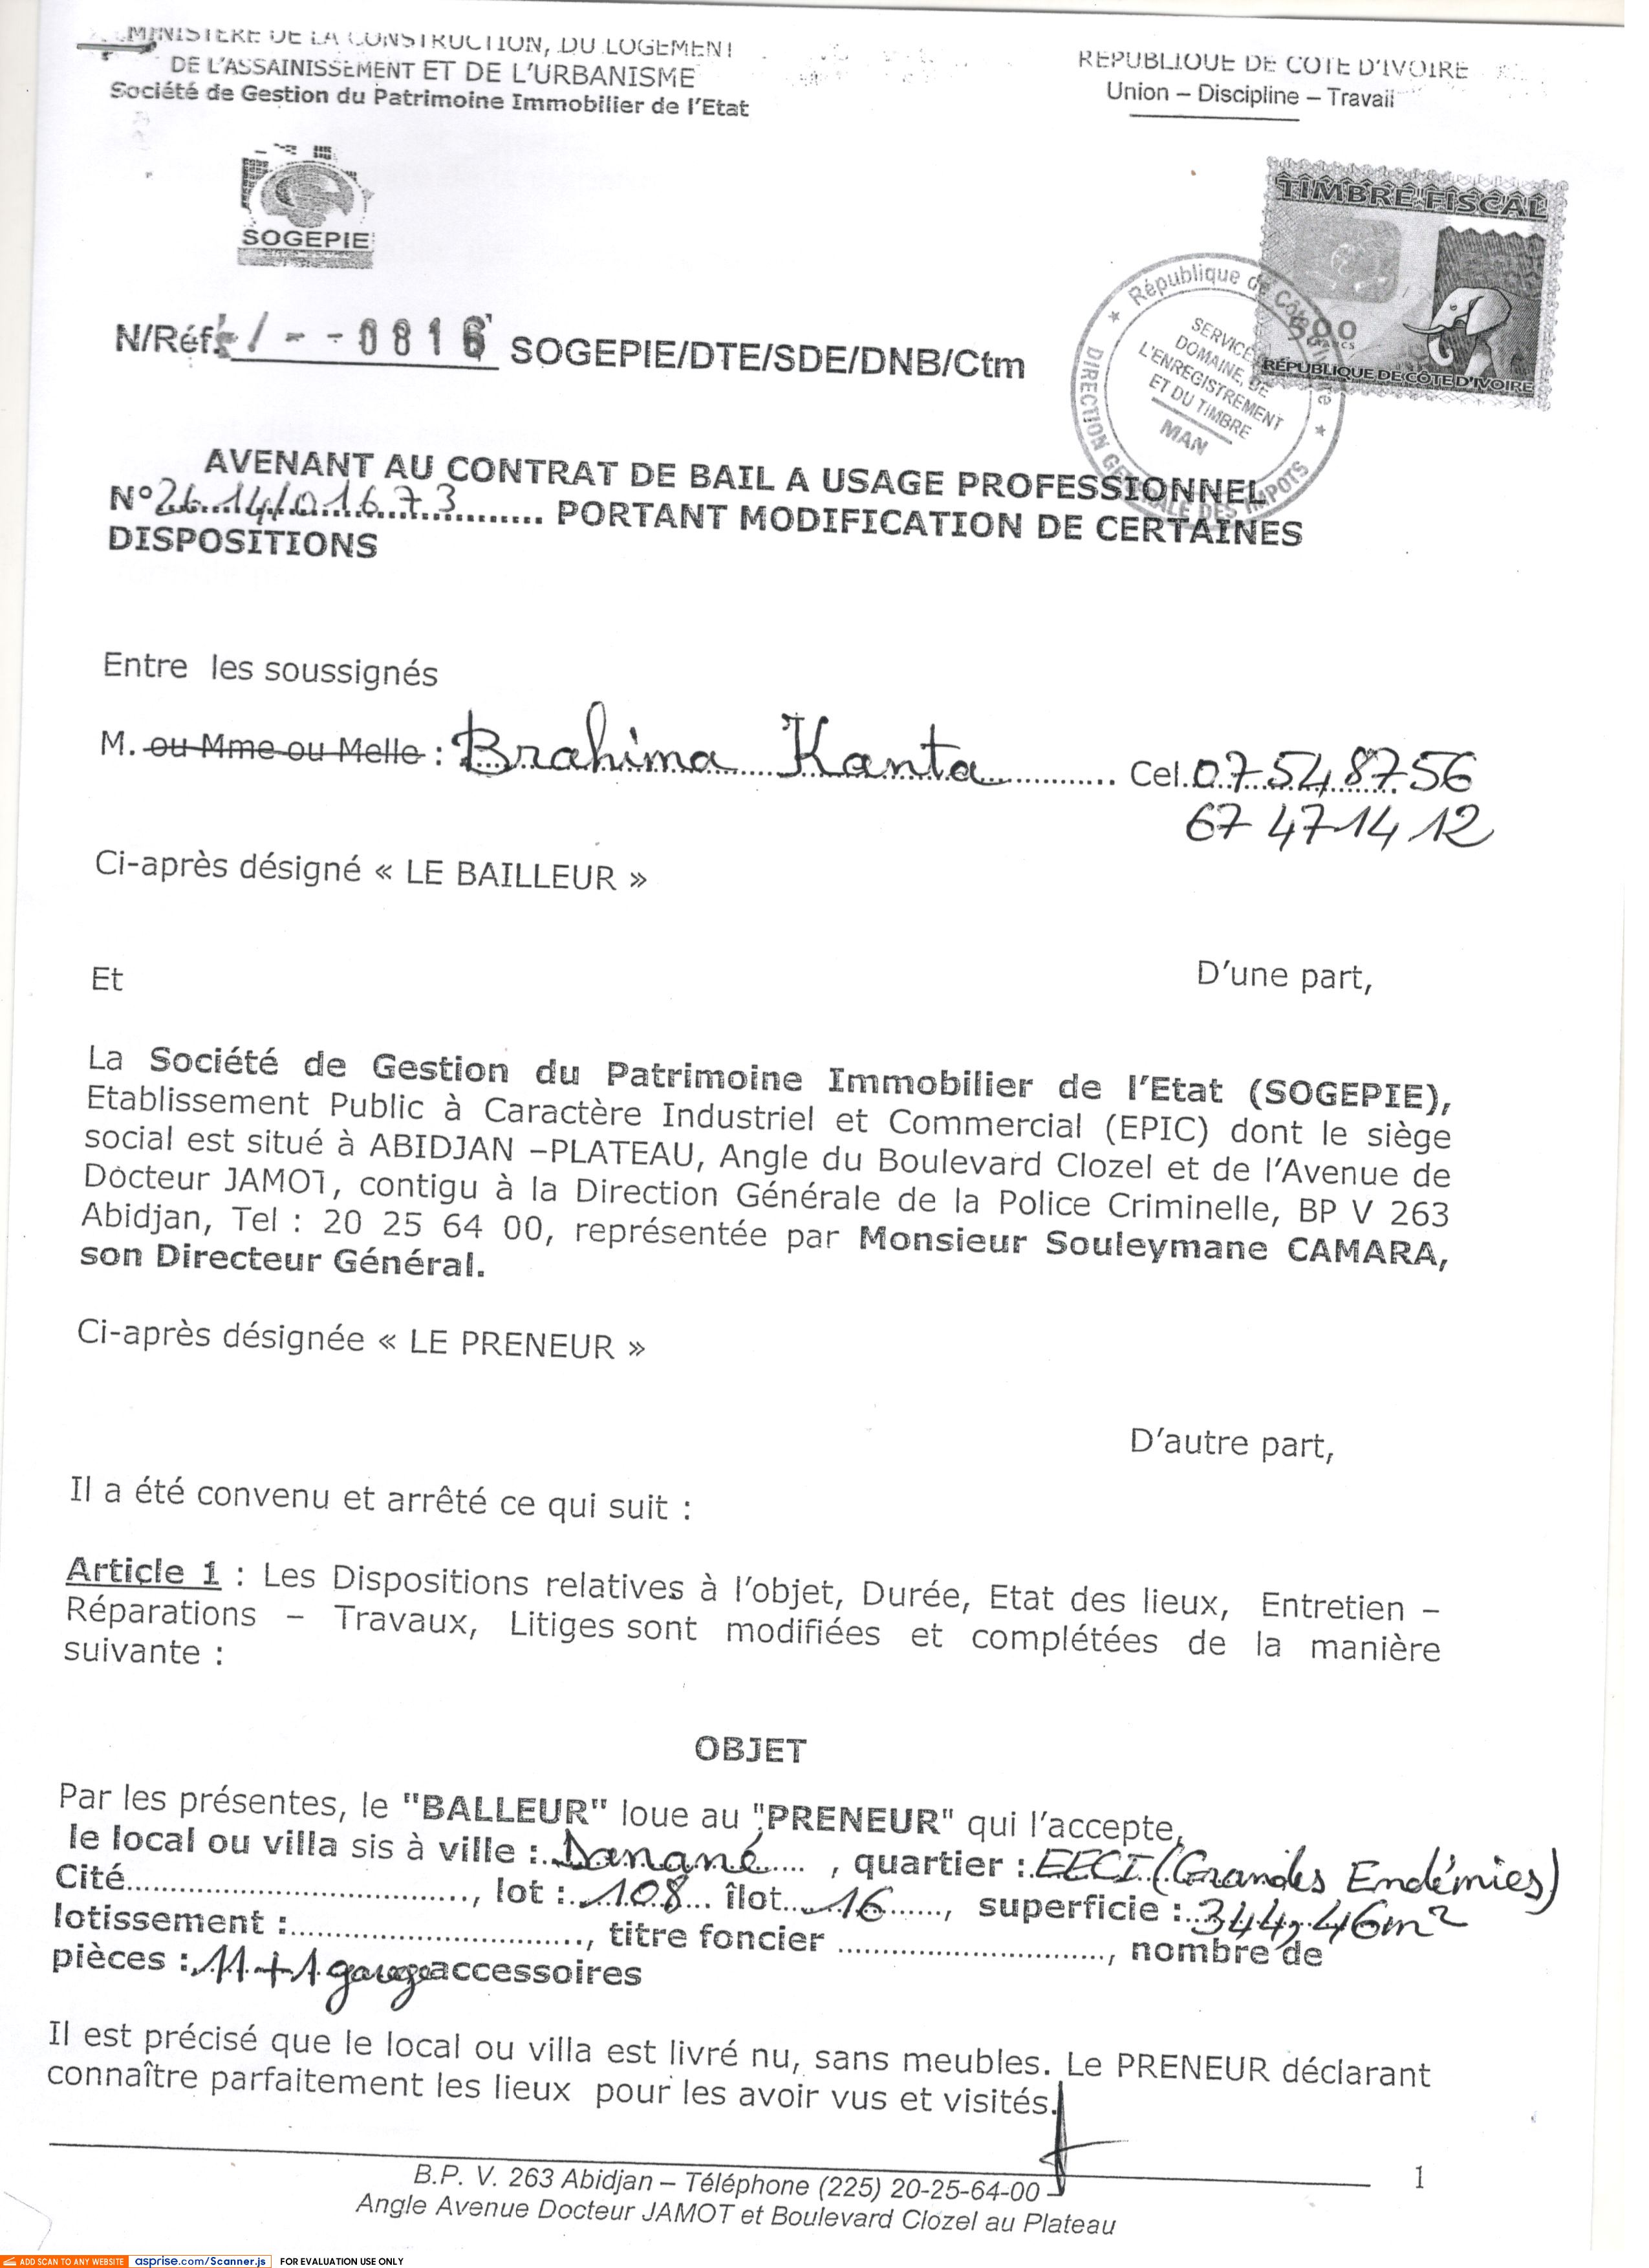 MINISTERE DE LA CONSTRUCTION, DU LOGEMENT
DE L'ASSAINISSEMENT ET DE L'URBANISME
Société de Gestion du Patrimoine Immobilier de l'Etat
REPUBLIQUE DE COTE D'IVOIRE
Union – Discipline – Travail
SOGEPIE
TIMBRE FISCAL
500
FRANCS
RÉPUBLIQUE DE CÔTE D'IVOIRE
République de Côte d'Ivoire
SERVICE
DOMAINE, DE
L'ENREGISTREMENT
ET DU TIMBRE
MAN
DIRECTION GENERALE DES IMPOTS
N/Réf. / - - 0816 SOGEPIE/DTE/SDE/DNB/Ctm
AVENANT AU CONTRAT DE BAIL A USAGE PROFESSIONNEL
N° 26.14.01673 PORTANT MODIFICATION DE CERTAINES
DISPOSITIONS
Entre les soussignés
M. ou Mme ou Melle : Brahima Kanta Cel. 07548756
67 47 14 12
Ci-après désigné « LE BAILLEUR »
D'une part,
Et
La Société de Gestion du Patrimoine Immobilier de l'Etat (SOGEPIE),
Etablissement Public à Caractère Industriel et Commercial (EPIC) dont le siège
social est situé à ABIDJAN –PLATEAU, Angle du Boulevard Clozel et de l'Avenue de
Docteur JAMOT, contigu à la Direction Générale de la Police Criminelle, BP V 263
Abidjan, Tel : 20 25 64 00, représentée par Monsieur Souleymane CAMARA,
son Directeur Général.
Ci-après désignée « LE PRENEUR »
D'autre part,
Il a été convenu et arrêté ce qui suit :
Article 1 : Les Dispositions relatives à l'objet, Durée, Etat des lieux, Entretien –
Réparations – Travaux, Litiges sont modifiées et complétées de la manière
suivante :
OBJET
Par les présentes, le "BALLEUR" loue au "PRENEUR" qui l'accepte,
le local ou villa sis à ville : Danané , quartier : EECI (Grandes Endémies)
Cité, lot : 108 îlot 16, superficie : 344,46m²
lotissement :, titre foncier, nombre de
pièces : 11+1 garage accessoires
Il est précisé que le local ou villa est livré nu, sans meubles. Le PRENEUR déclarant
connaître parfaitement les lieux pour les avoir vus et visités.
B.P. V. 263 Abidjan – Téléphone (225) 20-25-64-00
Angle Avenue Docteur JAMOT et Boulevard Clozel au Plateau
1
ADD SCAN TO ANY WEBSITE asprise.com/Scanner.js FOR EVALUATION USE ONLY